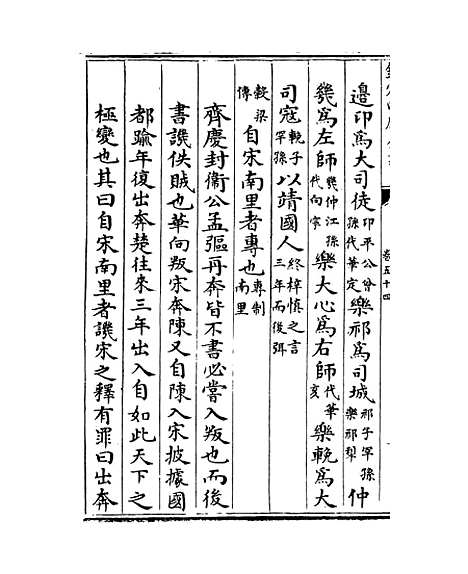 卷五十四
邉卬爲大司徒卬平公曾孫代華定樂祁爲司城祁子罕孫樂祁犂仲
㡬爲左師㡬仲江孫代向寧樂大心爲右師代華亥樂輓爲大
司寇輓子罕孫以靖國人終梓慎之言三年而後弭
榖梁傳自宋南里者專也專制南里
齊慶封衞公孟彄再奔皆不書必嘗入叛也而後
書譏佚賊也華向叛宋奔陳又自陳入宋披據國
都踰年復出奔楚往來三年出入自如此天下之
極變也其曰自宋南里者譏宋之釋有罪曰出奔